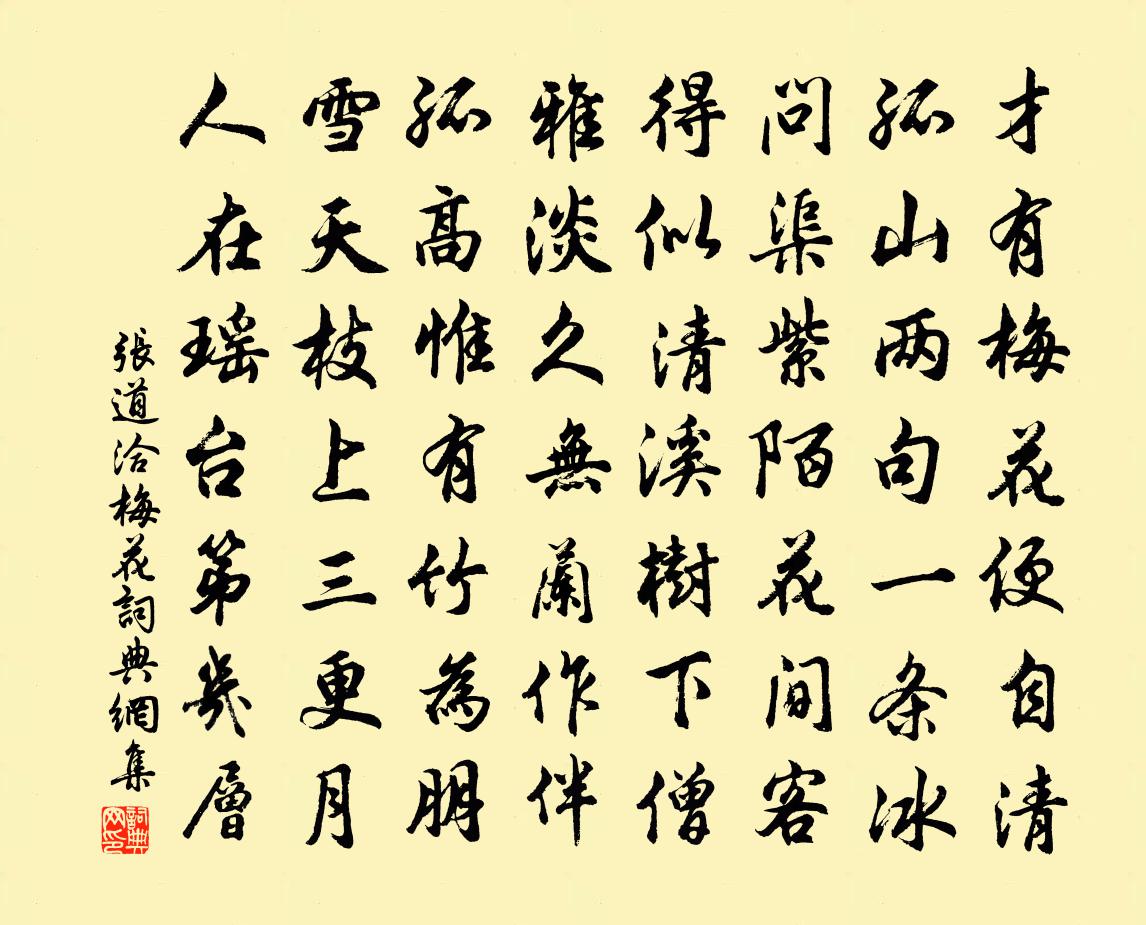 才有梅花便自清
孤山两句一条冰
問渠紫陌花間客
得似清溪樹下僧
雅淡久無蘭作伴
孤高惟有竹為朋
雪天枝上三更月
人在瑶台第幾層
張道洽梅花詞典網集
詞典网印